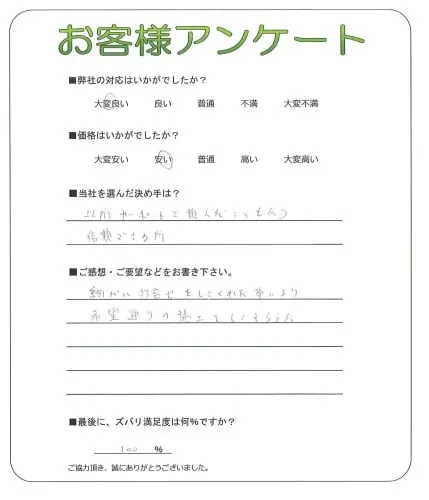 お客様アンケート
■弊社の対応はいかがでしたか?
大変良い 良い 普通 不満 大変不満
■価格はいかがでしたか?
大変安い 安い 普通 高い 大変高い
■当社を選んだ決め手は?
以前カーポートで頼んだこともあり
信頼できる所
■ご感想・ご要望などをお書き下さい。
細かい打合せをしてくれた事により
希望通りの施工をしてもらえた
■最後に、ズバリ満足度は何%ですか?
100 %
ご協力頂き、誠にありがとうございました。